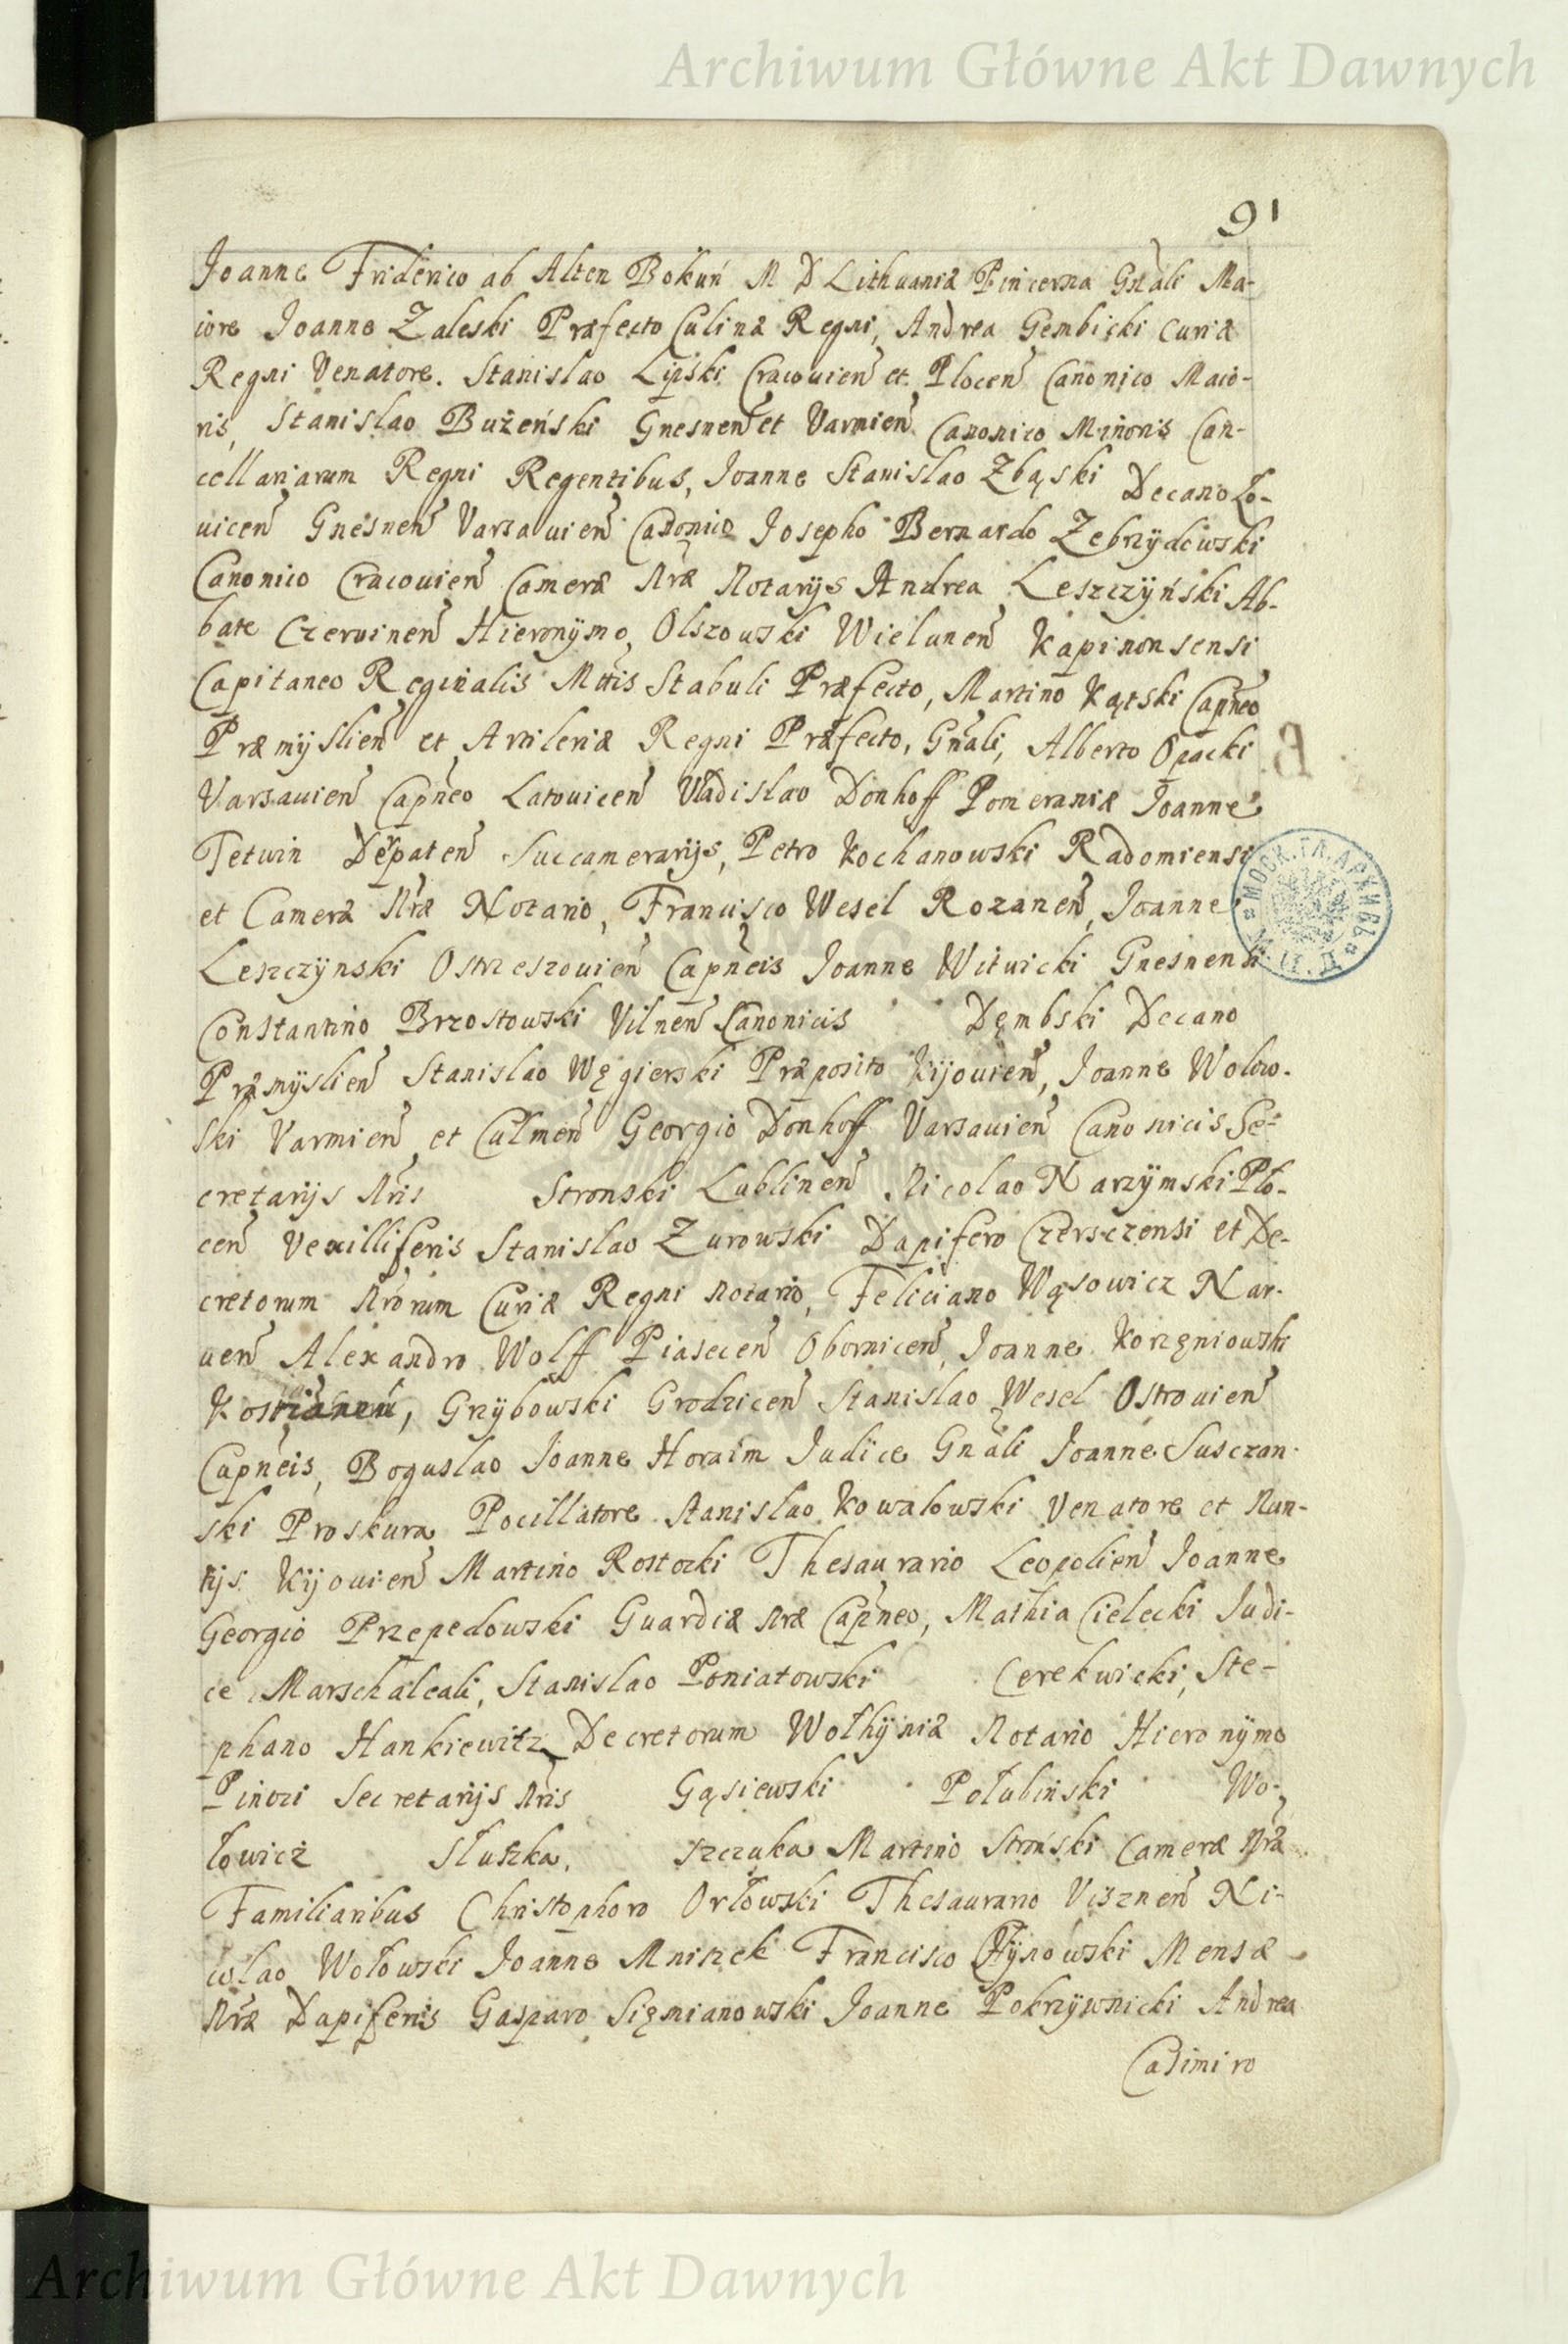 Archiwum Główne Akt Dawnych
91
Joanne Friderico ab Alten Bokuń M D Lithuaniæ Pincerna Gnali Ma-
iore Joanne Zaleski Præfecto Culinæ Regni, Andrea Gembicki Curiæ
Regni Venatore. Stanislao Lipski Cracovien et Plocen Canonico Maio-
ris, Stanislao Bużeński Gnesnen et Varmien Canonico Minoris Can-
cellariarum Regni Regentibus, Joanne Stanislao Zbąski Decano Ło-
vicen Gnesnen Varsavien Canonico Josepho Bernardo Zebrzydowski
Canonico Cracovien Cameræ Nræ Notarijs Andrea Leszczyński Ab-
bate Czervinen Hieronymo Olszowski Wielunen Kapinonsensi
Capitaneo Reginalis Mttis Stabuli Præfecto, Martino Kątski Capneo
Præmyslien et Artileriæ Regni Præfecto, Gnali, Alberto Opacki
Varsavien Capneo Latovicen Vladislao Donhoff Pomeraniæ Joanne
Tetwin Derpaten Succamerarijs, Petro Kochanowski Radomiensi
et Cameræ Nræ Notario, Francisco Wesel Rozanen, Joanne
Leszczynski Ostrzeszovien Capneis Joanne Witwicki Gnesnen
Constantino Brzostowski Vilnen Canonicis Dęmbski Decano
Præmyslien Stanislao Węgierski Præposito Kijovien, Joanne Wolow-
ski Varmien et Culmen Georgio Donhoff Varsavien Canonicis Se-
cretarijs Nris Stronski Lublinen Nicolao Narzymski Pło-
cen Vexilliferis Stanislao Zurowski Dapifero Czersczensi et De-
cretorum Nrorum Curiæ Regni Notario, Feliciano Wąsowicz Nar-
ven Alexandro Wolff Piasecen Obornicen, Joanne Korzęniowski
Grzybowski Grodzicen Stanislao Wesel Ostrovien
Capneis, Boguslao Joanne Horaim Judice Gnali Joanne Susczan-
ski Proskura Pocillatore Stanislao Kowalowski Venatore et Nun-
tijs Kijovien Martino Rostocki Thesaurario Leopolien Joanne
Georgio Przepedowski Guardiæ Nræ Capneo, Mathia Cielecki Judi-
ce Marschalcali, Stanislao Poniatowski Cerekwicki, Ste-
phano Hankiewitz Decretorum Wołhyniæ Notario Hieronymo
Pinozi Secretarijs Nris Gąsiewski Połubiński Wo-
łowicz Słuszka, Szczuka Martino Stroński Cameræ Nræ
Familiaribus Christophoro Orłowski Thesaurario Visznen Ni-
colao Wołowski Joanne Mniszek Francisco Mensæ
Nræ Dapiferis Gasparo Sięmianowski Joanne Pokrzywnicki Andrea
Casimiro
МОСК. ГЛ. АРХИВЪ
Archiwum Główne Akt Dawnych